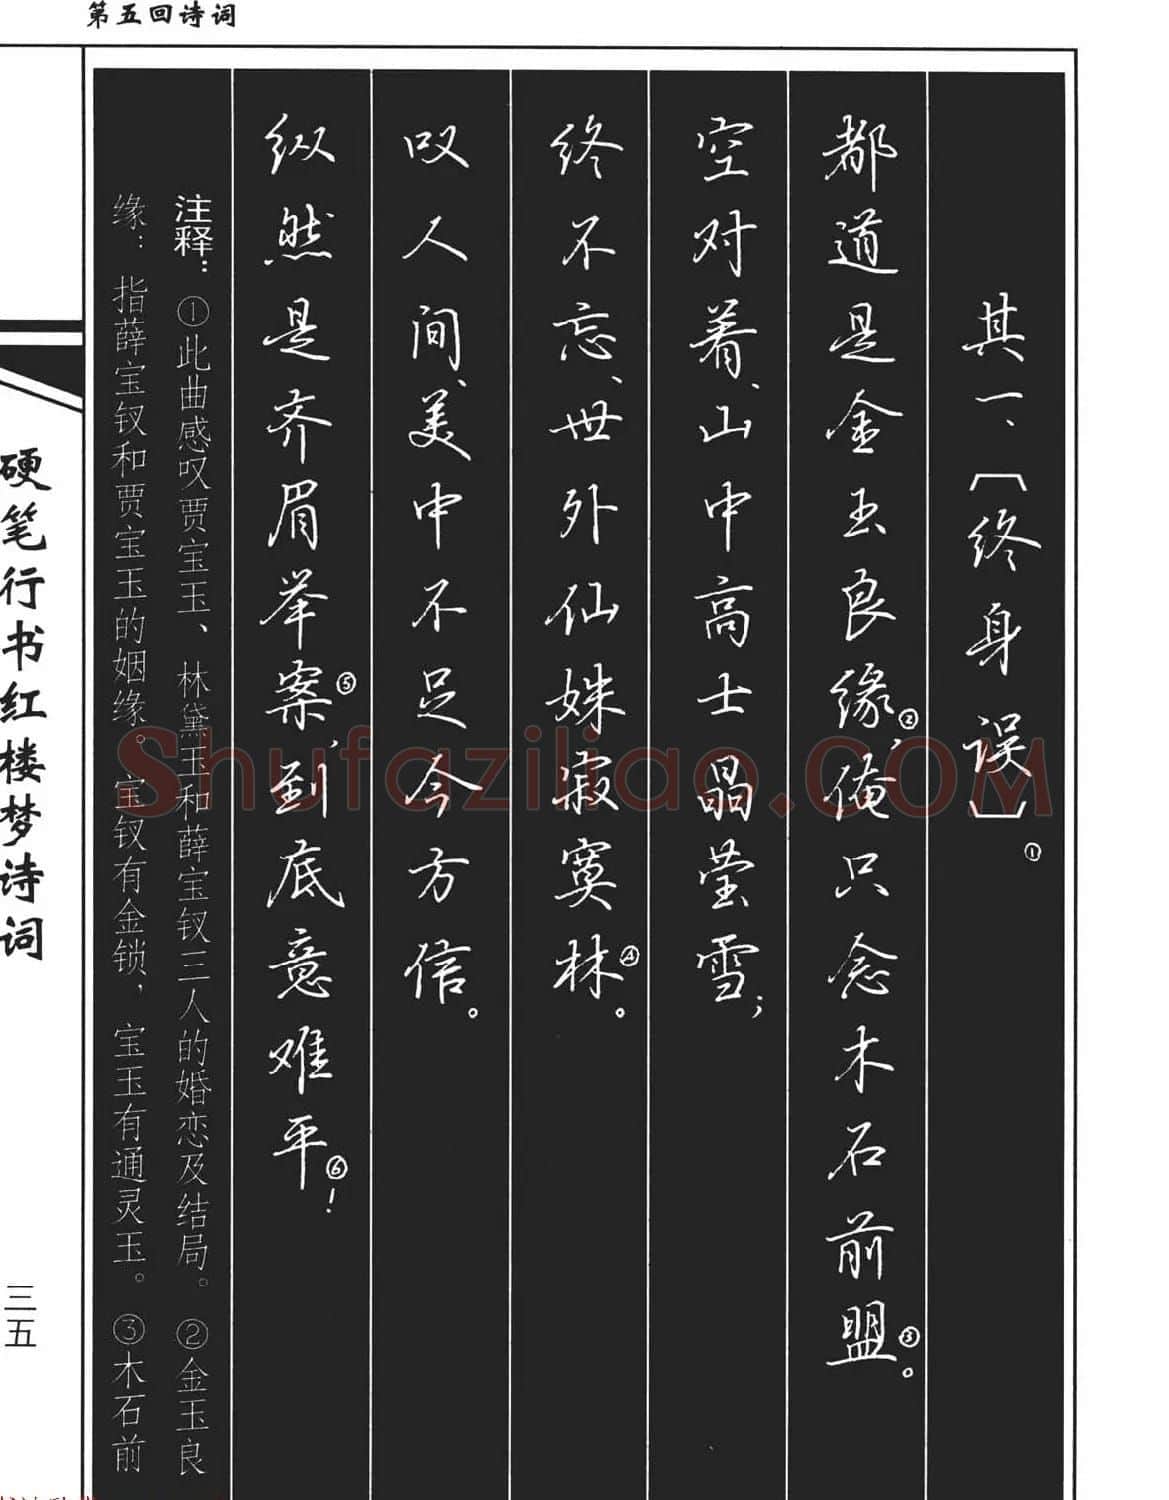 第五回诗词
其一、〔终身误〕①
都道是金玉良缘②、俺只念木石前盟③。
空对着、山中高士晶莹雪；
终不忘、世外仙姝寂寞林④。
叹人间、美中不足今方信。
纵然是齐眉举案⑤、到底意难平⑥！
注释：①此曲感叹贾宝玉、林黛玉和薛宝钗三人的婚恋及结局。②金玉良
缘：指薛宝钗和贾宝玉的姻缘。宝钗有金锁，宝玉有通灵玉。③木石前
硬笔行书红楼梦诗词
三五
Shufaziliao.COM